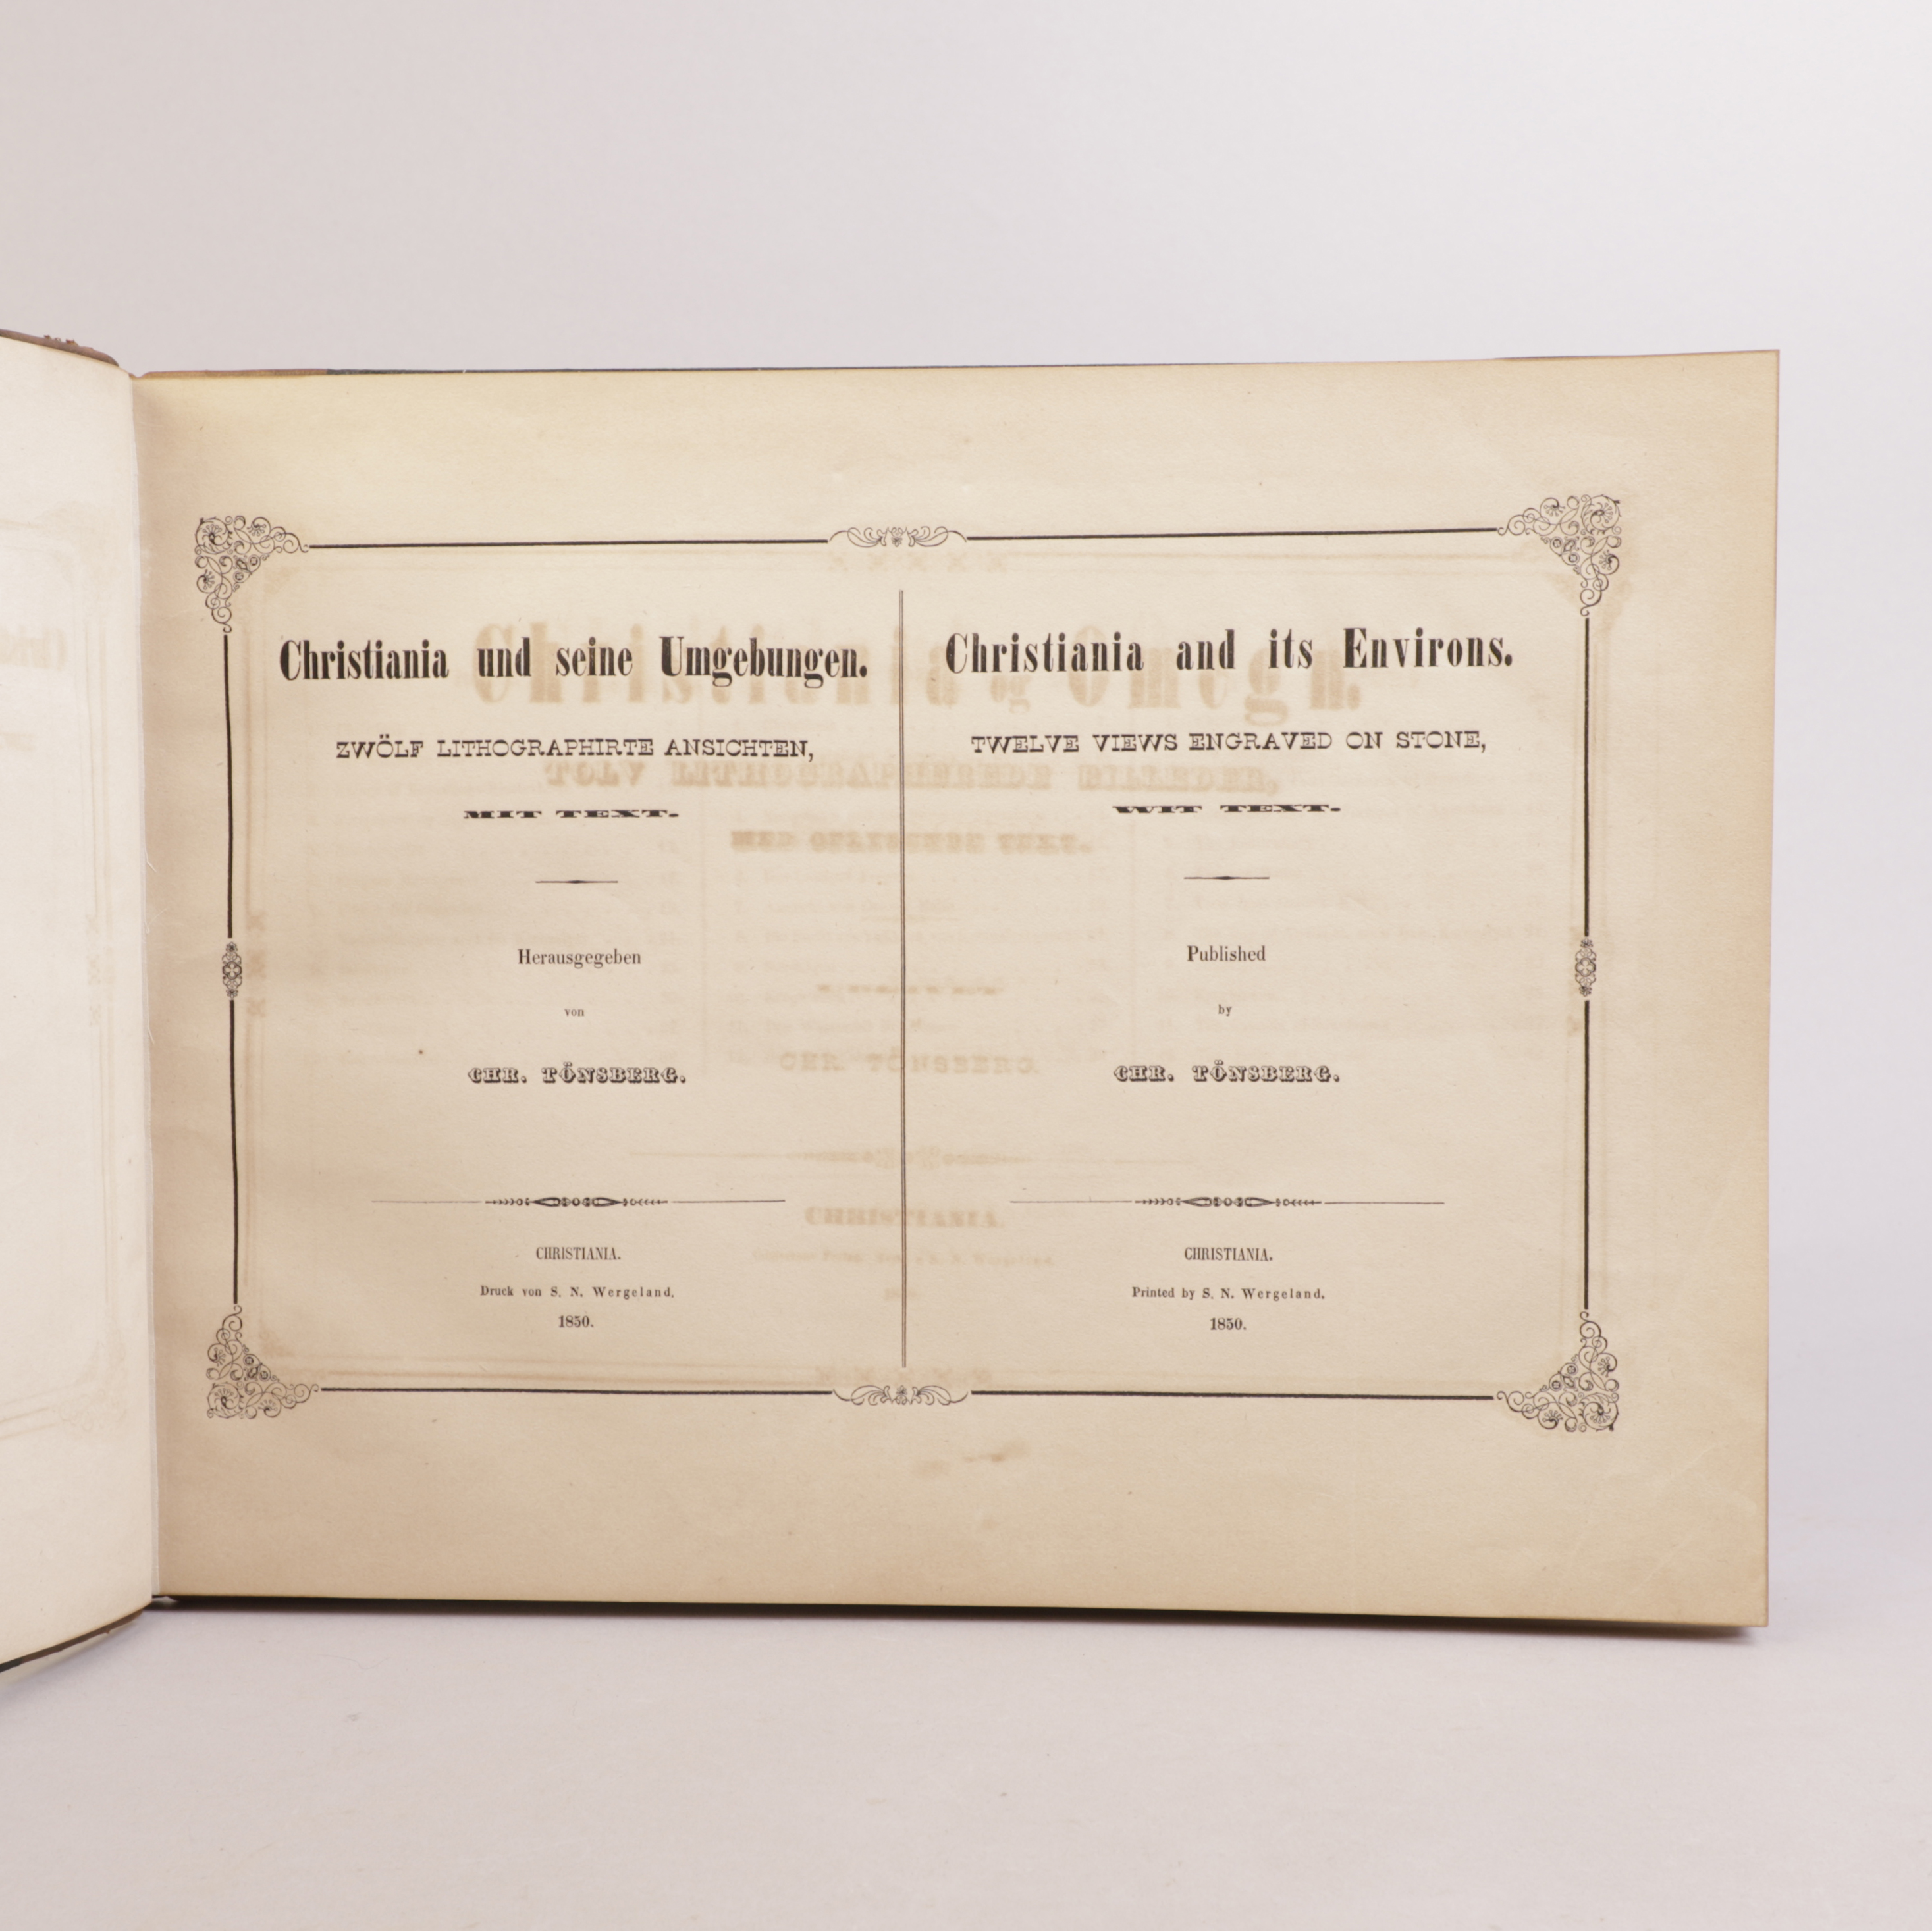 Christiania und seine Umgebungen.
ZWÖLF LITHOGRAPHIRTE ANSICHTEN,
MIT TEXT.
Herausgegeben
von
CHR. TÖNSBERG.
CHRISTIANIA.
Druck von S. N. Wergeland.
1850.
Christiania and its Environs.
TWELVE VIEWS ENGRAVED ON STONE,
WIT TEXT.
Published
by
CHR. TÖNSBERG.
CHRISTIANIA.
Printed by S. N. Wergeland.
1850.
Christiania og Omegn.
TOLV LITHOGRAPHEREDE BILLEDER,
CHR. TÖNSBERG.
CHRISTIANIA.